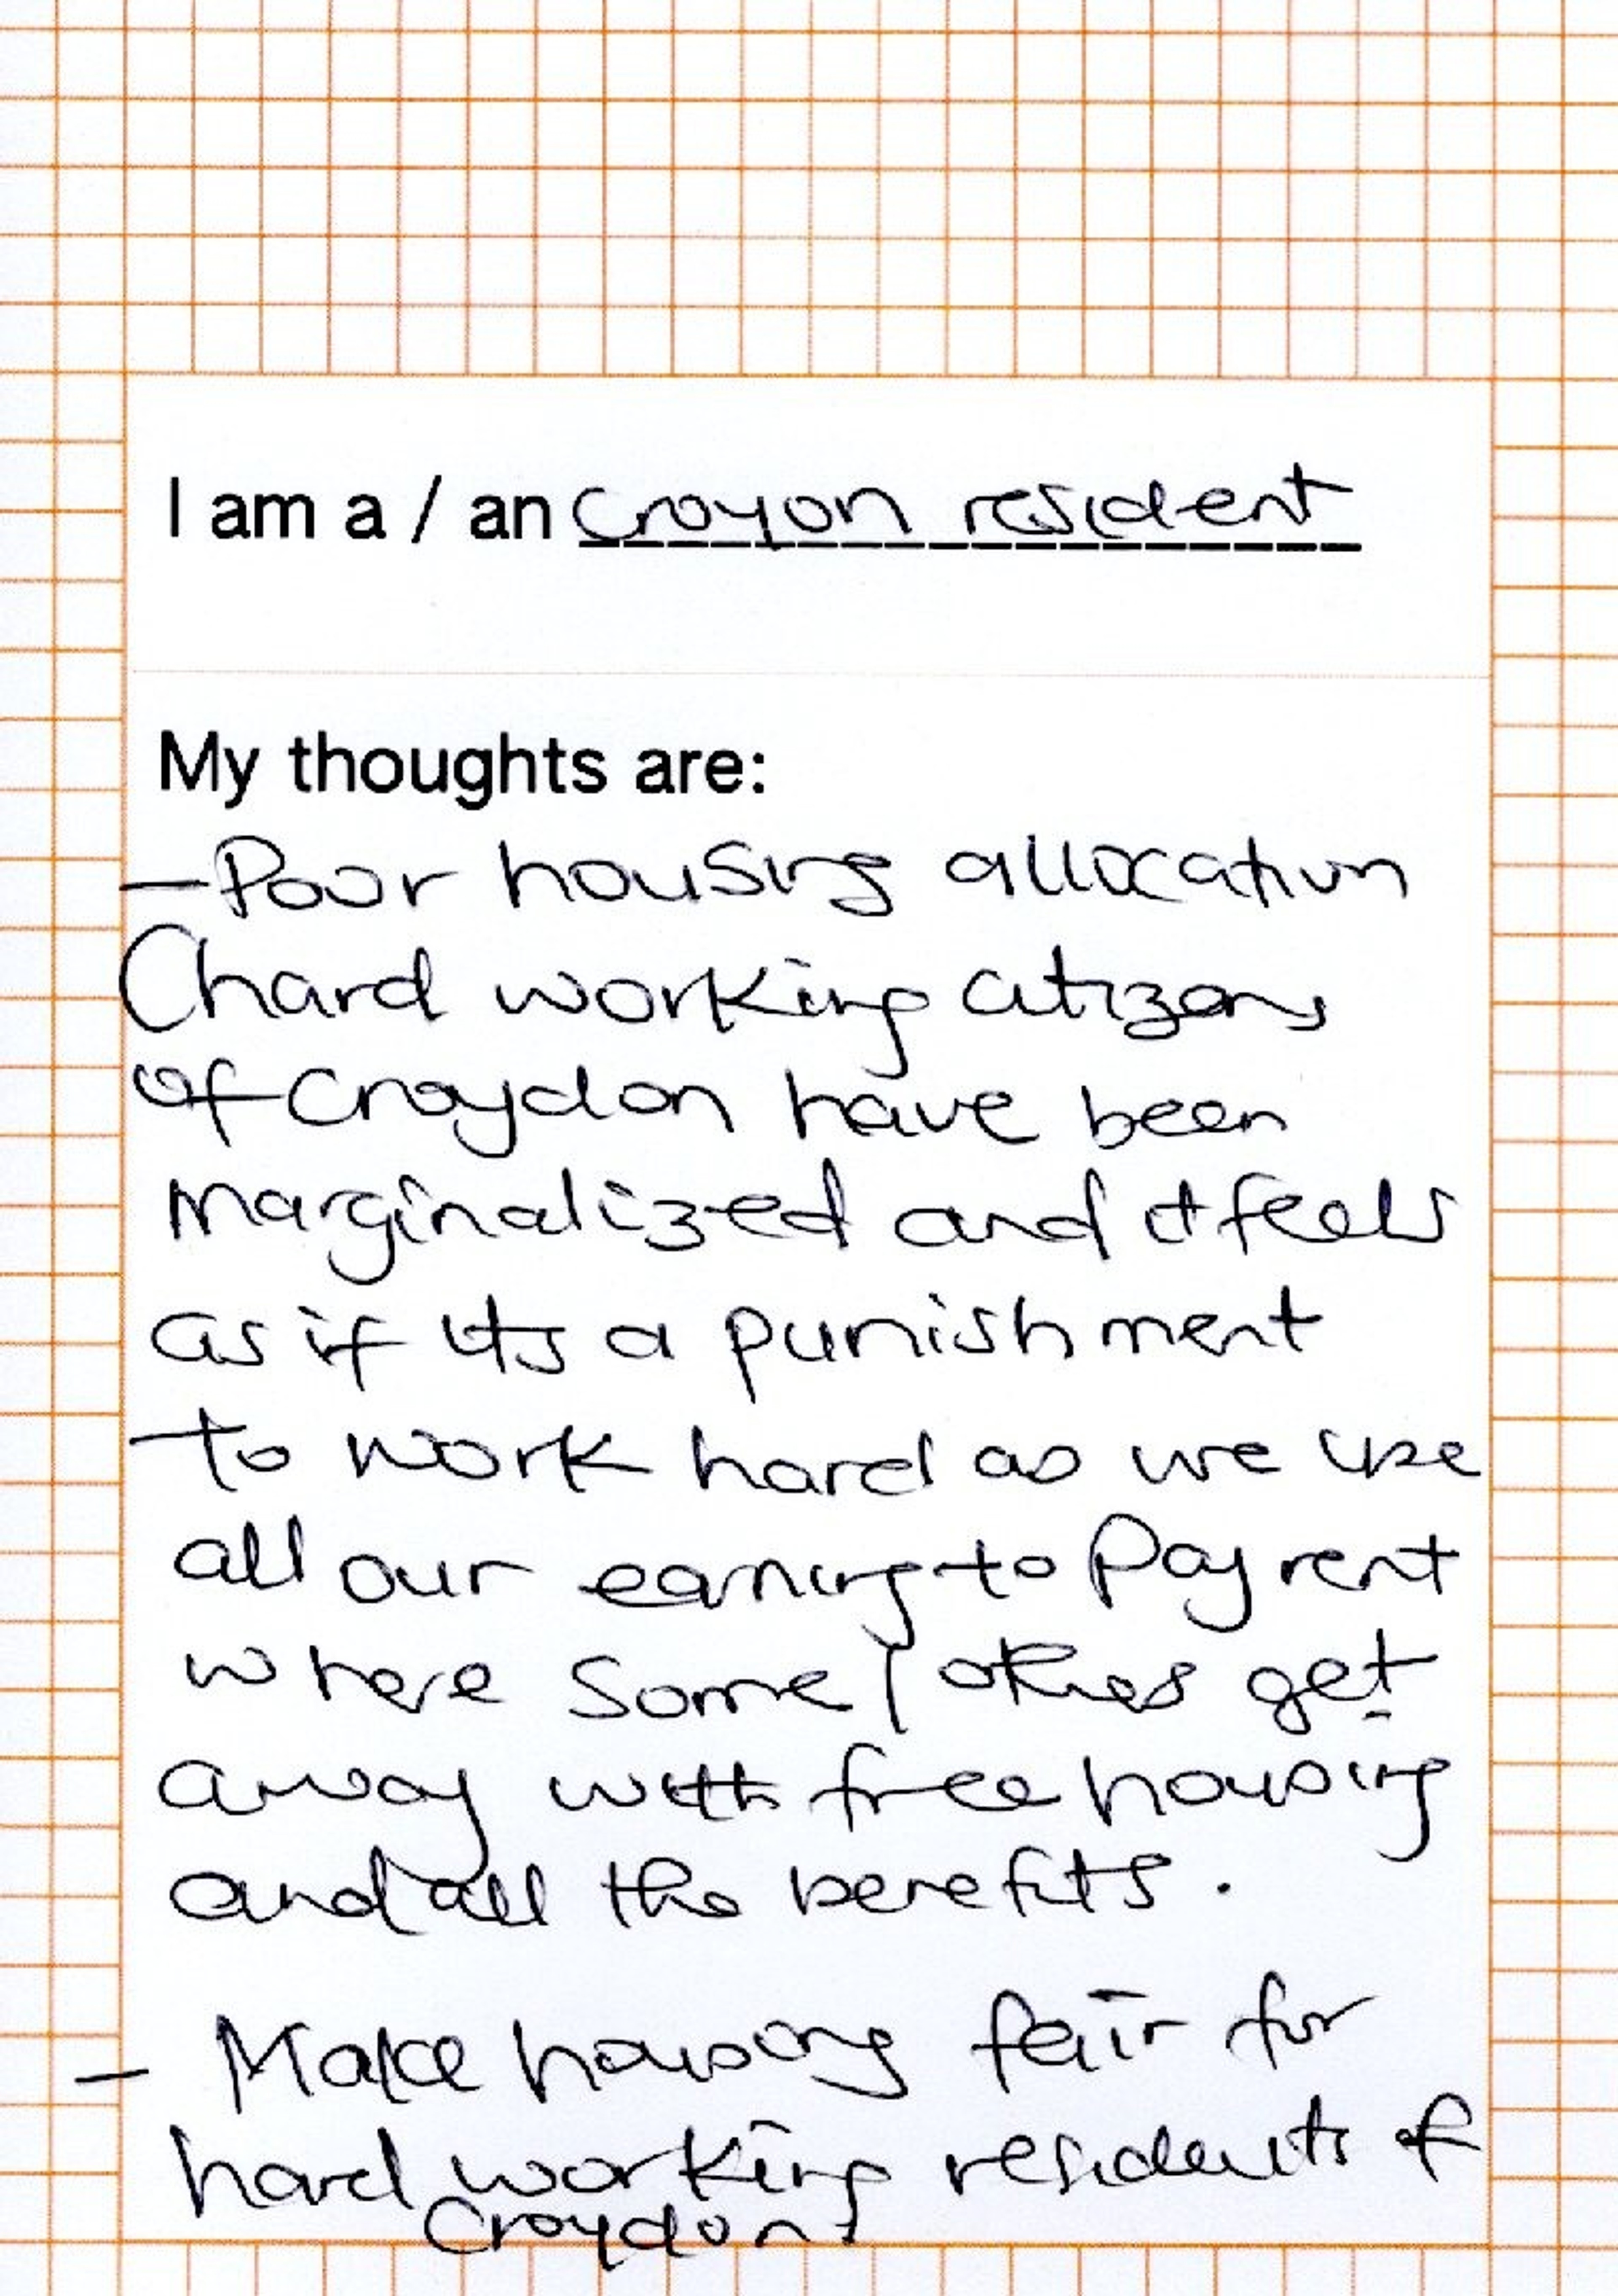 I am a / an croyon resident
My thoughts are:
- Poor housing allocation
(hard working citizens
of Croydon have been
marginalized and it feels
as if its a punishment
to work hard as we use
all our earning to pay rent
where some / others get
away with free housing
and all the benefits.
- Make housing fair for
hard working residents of
Croydon